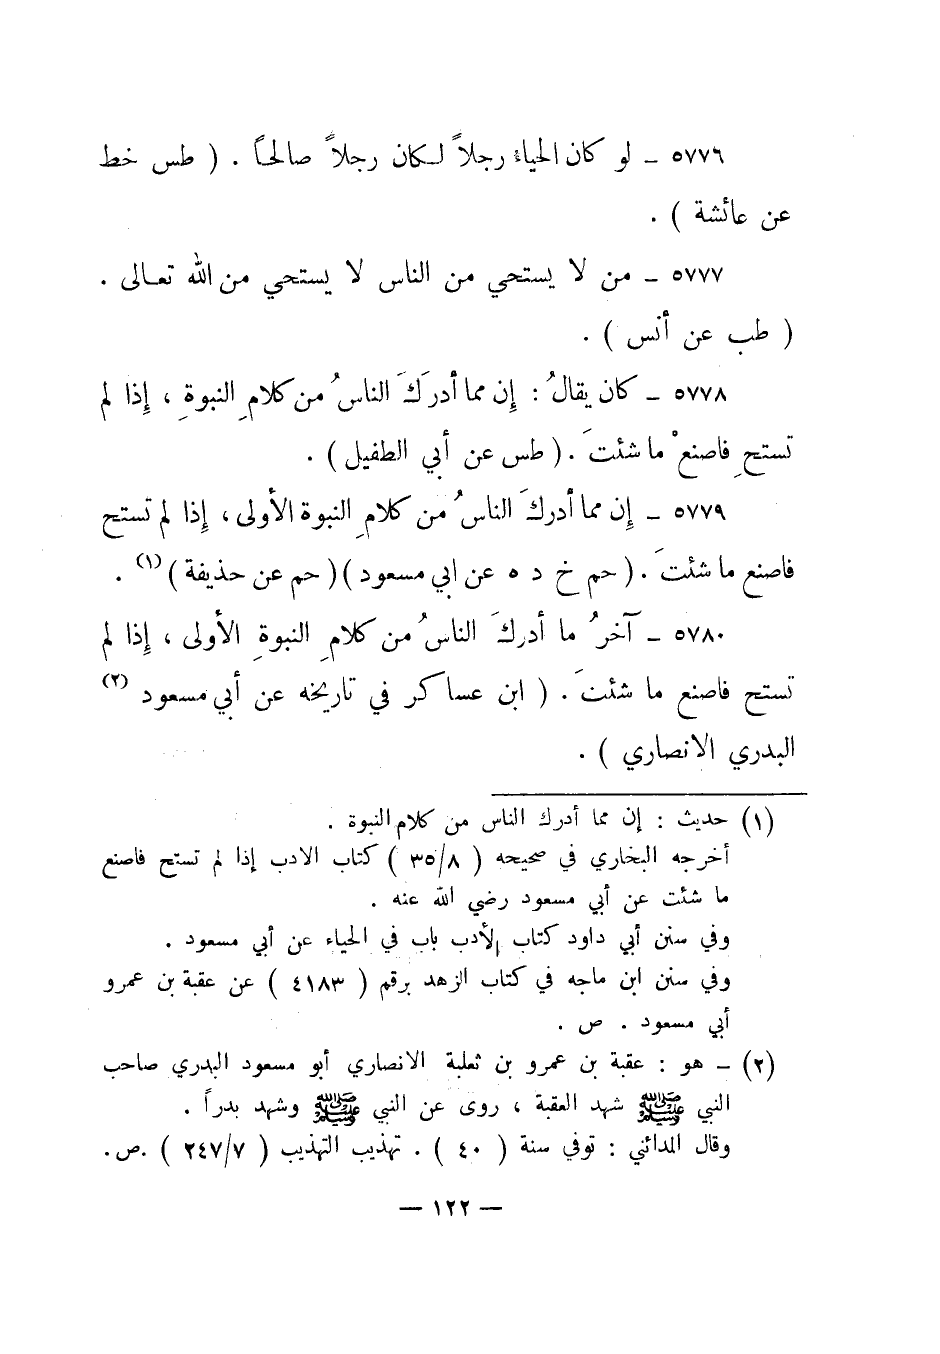 ٥٧٧٦ ـ لو كان الحياءُ رجلاً لكان رجلاً صالحاً . ( طس خط
عن عائشة ) .
٥٧٧٧ ـ من لا يستحي من الناس لا يستحي من الله تعالى .
( طب عن أنس ) .
٥٧٧٨ ـ كان يقالُ : إن مما أدركَ الناسُ من كلامِ النبوةِ ، إذا لم
تستحِ فاصنعْ ما شئتَ . ( طس عن أبي الطفيل ) .
٥٧٧٩ ـ إن مما أدركَ الناسُ من كلامِ النبوة الأولى ، إذا لم تستح
فاصنع ما شئتَ . ( حم خ د ه عن ابي مسعود ) ( حم عن حذيفة ) (١) .
٥٧٨٠ ـ آخرُ ما أدركَ الناسُ من كلامِ النبوةِ الأولى ، إذا لم
تستح فاصنع ما شئتَ . ( ابن عساكر في تاريخه عن أبي مسعود (٢)
البدري الانصاري ) .
(١) حديث : إن مما أدرك الناس من كلام النبوة .
أخرجه البخاري في صحيحه ( ٣٥/٨ ) كتاب الادب إذا لم تستح فاصنع
ما شئت عن أبي مسعود رضي الله عنه .
وفي سنن أبي داود كتاب الأدب باب في الحياء عن أبي مسعود .
وفي سنن ابن ماجه في كتاب الزهد برقم ( ٤١٨٣ ) عن عقبة بن عمرو
أبي مسعود . ص .
(٢) ـ هو : عقبة بن عمرو بن ثعلبة الانصاري أبو مسعود البدري صاحب
النبي ﷺ شهد العقبة ، روى عن النبي ﷺ وشهد بدراً .
وقال المدائني : توفي سنة ( ٤٠ ) . تهذيب التهذيب ( ٢٤٧/٧ ) .ص.
— ١٢٢ —